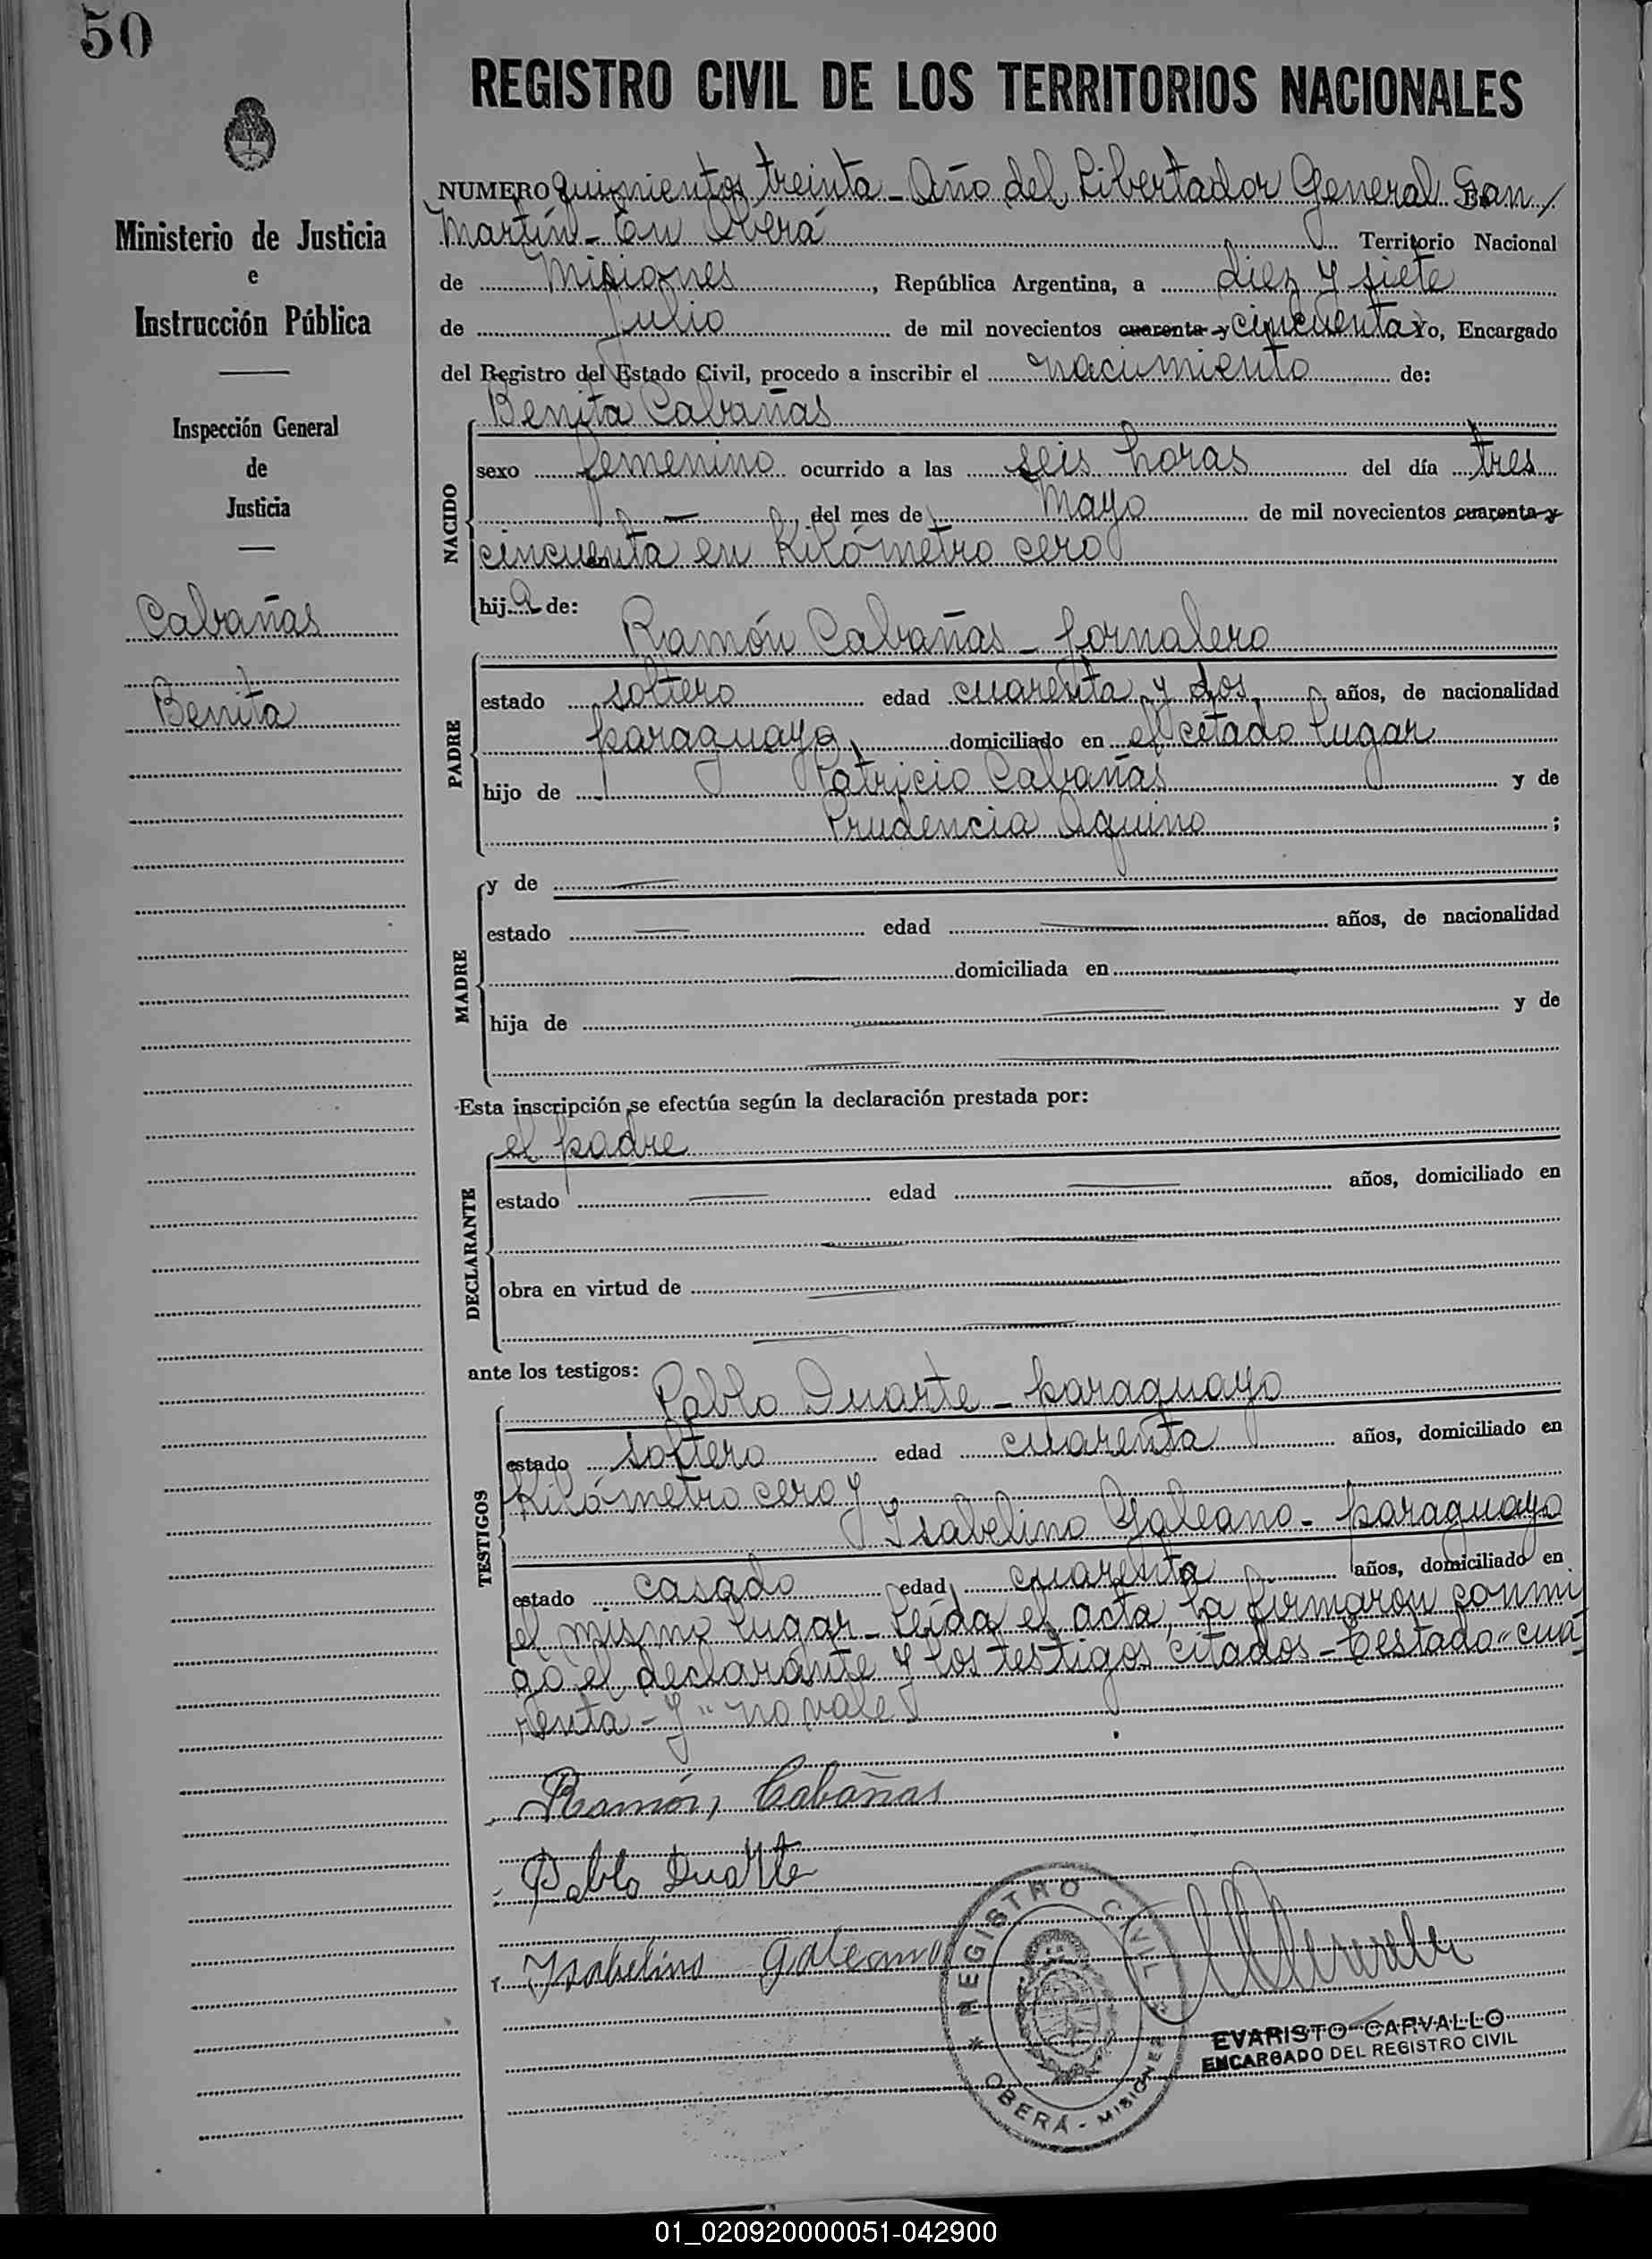 50
REGISTRO CIVIL DE LOS TERRITORIOS NACIONALES
Ministerio de Justicia
e
Instrucción Pública
Inspección General
de
Justicia
Cabañas
Benita
NUMERO quinientos treinta - Año del Libertador General San
Martín - En Oberá Territorio Nacional
de Misiones, República Argentina, a diez y siete
de Julio de mil novecientos cuarenta y cincuenta Yo, Encargado
del Registro del Estado Civil, procedo a inscribir el nacimiento de:
Benita Cabañas
NACIDO
sexo femenino ocurrido a las seis horas del día tres
del mes de Mayo de mil novecientos cuarenta y
cincuenta en Kilómetro cero
hija de:
Ramón Cabañas - Jornalero
PADRE
estado soltero edad cuarenta y dos años, de nacionalidad
paraguaya, domiciliado en el citado lugar
hijo de Patricio Cabañas y de
Prudencia Aquino ;
MADRE
y de
estado edad años, de nacionalidad
domiciliada en
hija de y de
Esta inscripción se efectúa según la declaración prestada por:
el padre
DECLARANTE
estado edad años, domiciliado en
obra en virtud de
ante los testigos:
Pablo Duarte - paraguayo
TESTIGOS
estado soltero edad cuarenta años, domiciliado en
Kilómetro cero y
Isabelino Galeano - paraguayo
estado casado edad cuarenta años, domiciliado en
el mismo lugar - Leída el acta, la firmaron conmi
go el declarante y los testigos citados - Testado "cua
renta - y" no vale
Ramón Cabañas
Pablo Duarte
Isabelino Galeano
REGISTRO CIVIL
* OBERÁ - MISIONES *
EVARISTO CARVALLO
ENCARGADO DEL REGISTRO CIVIL
01_020920000051-042900